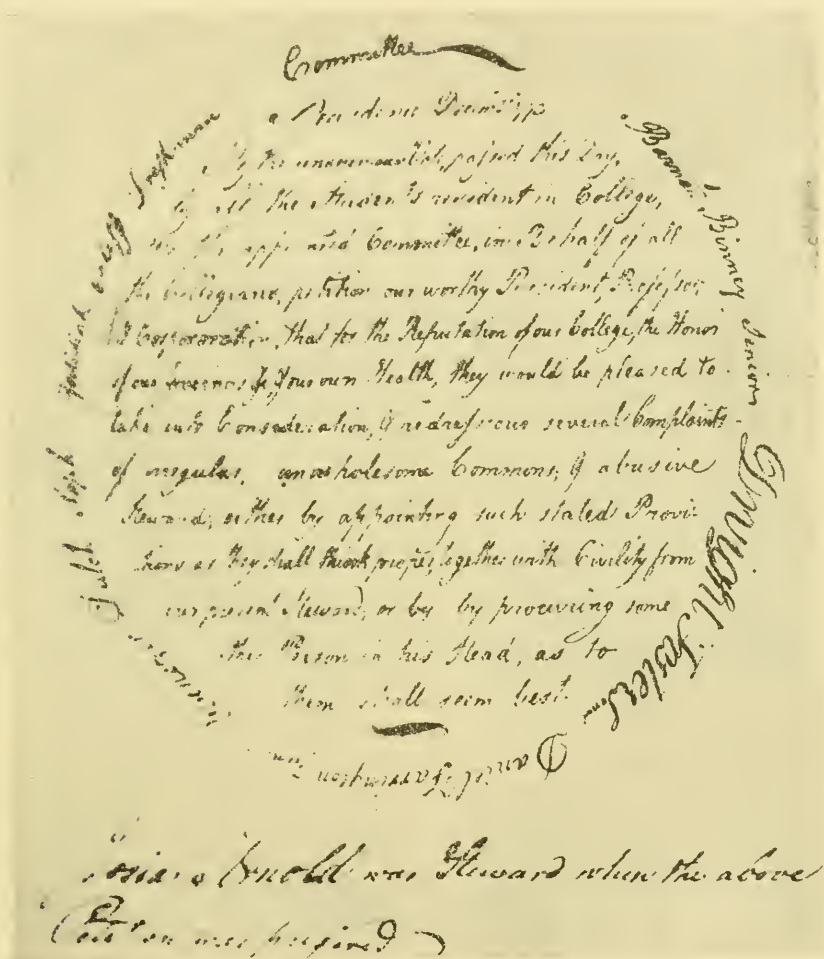 Committee
Providence
the unanimous Vote, passed this Day,
by all the Students resident in College,
we the appointed Committee, in Behalf of all
the Collegians, petition our worthy President, Professor,
& Corporation, that for the Reputation of our College, the Honor
of our Governors & of our own Health, they would be pleased to
take into Consideration, & redress our several Complaints
of irregular, unwholesome Commons, & abusive
Steward; either by appointing such stated Provi-
sions as they shall think proper, together with Civility from
our present Steward, or by by procuring some
other Person in his Stead, as to
them shall seem best.
Barnab. Binney Senior
Dwight Foster
Daniel Farrington
Freshman
Arnold was Steward when the above
Petition was prepared